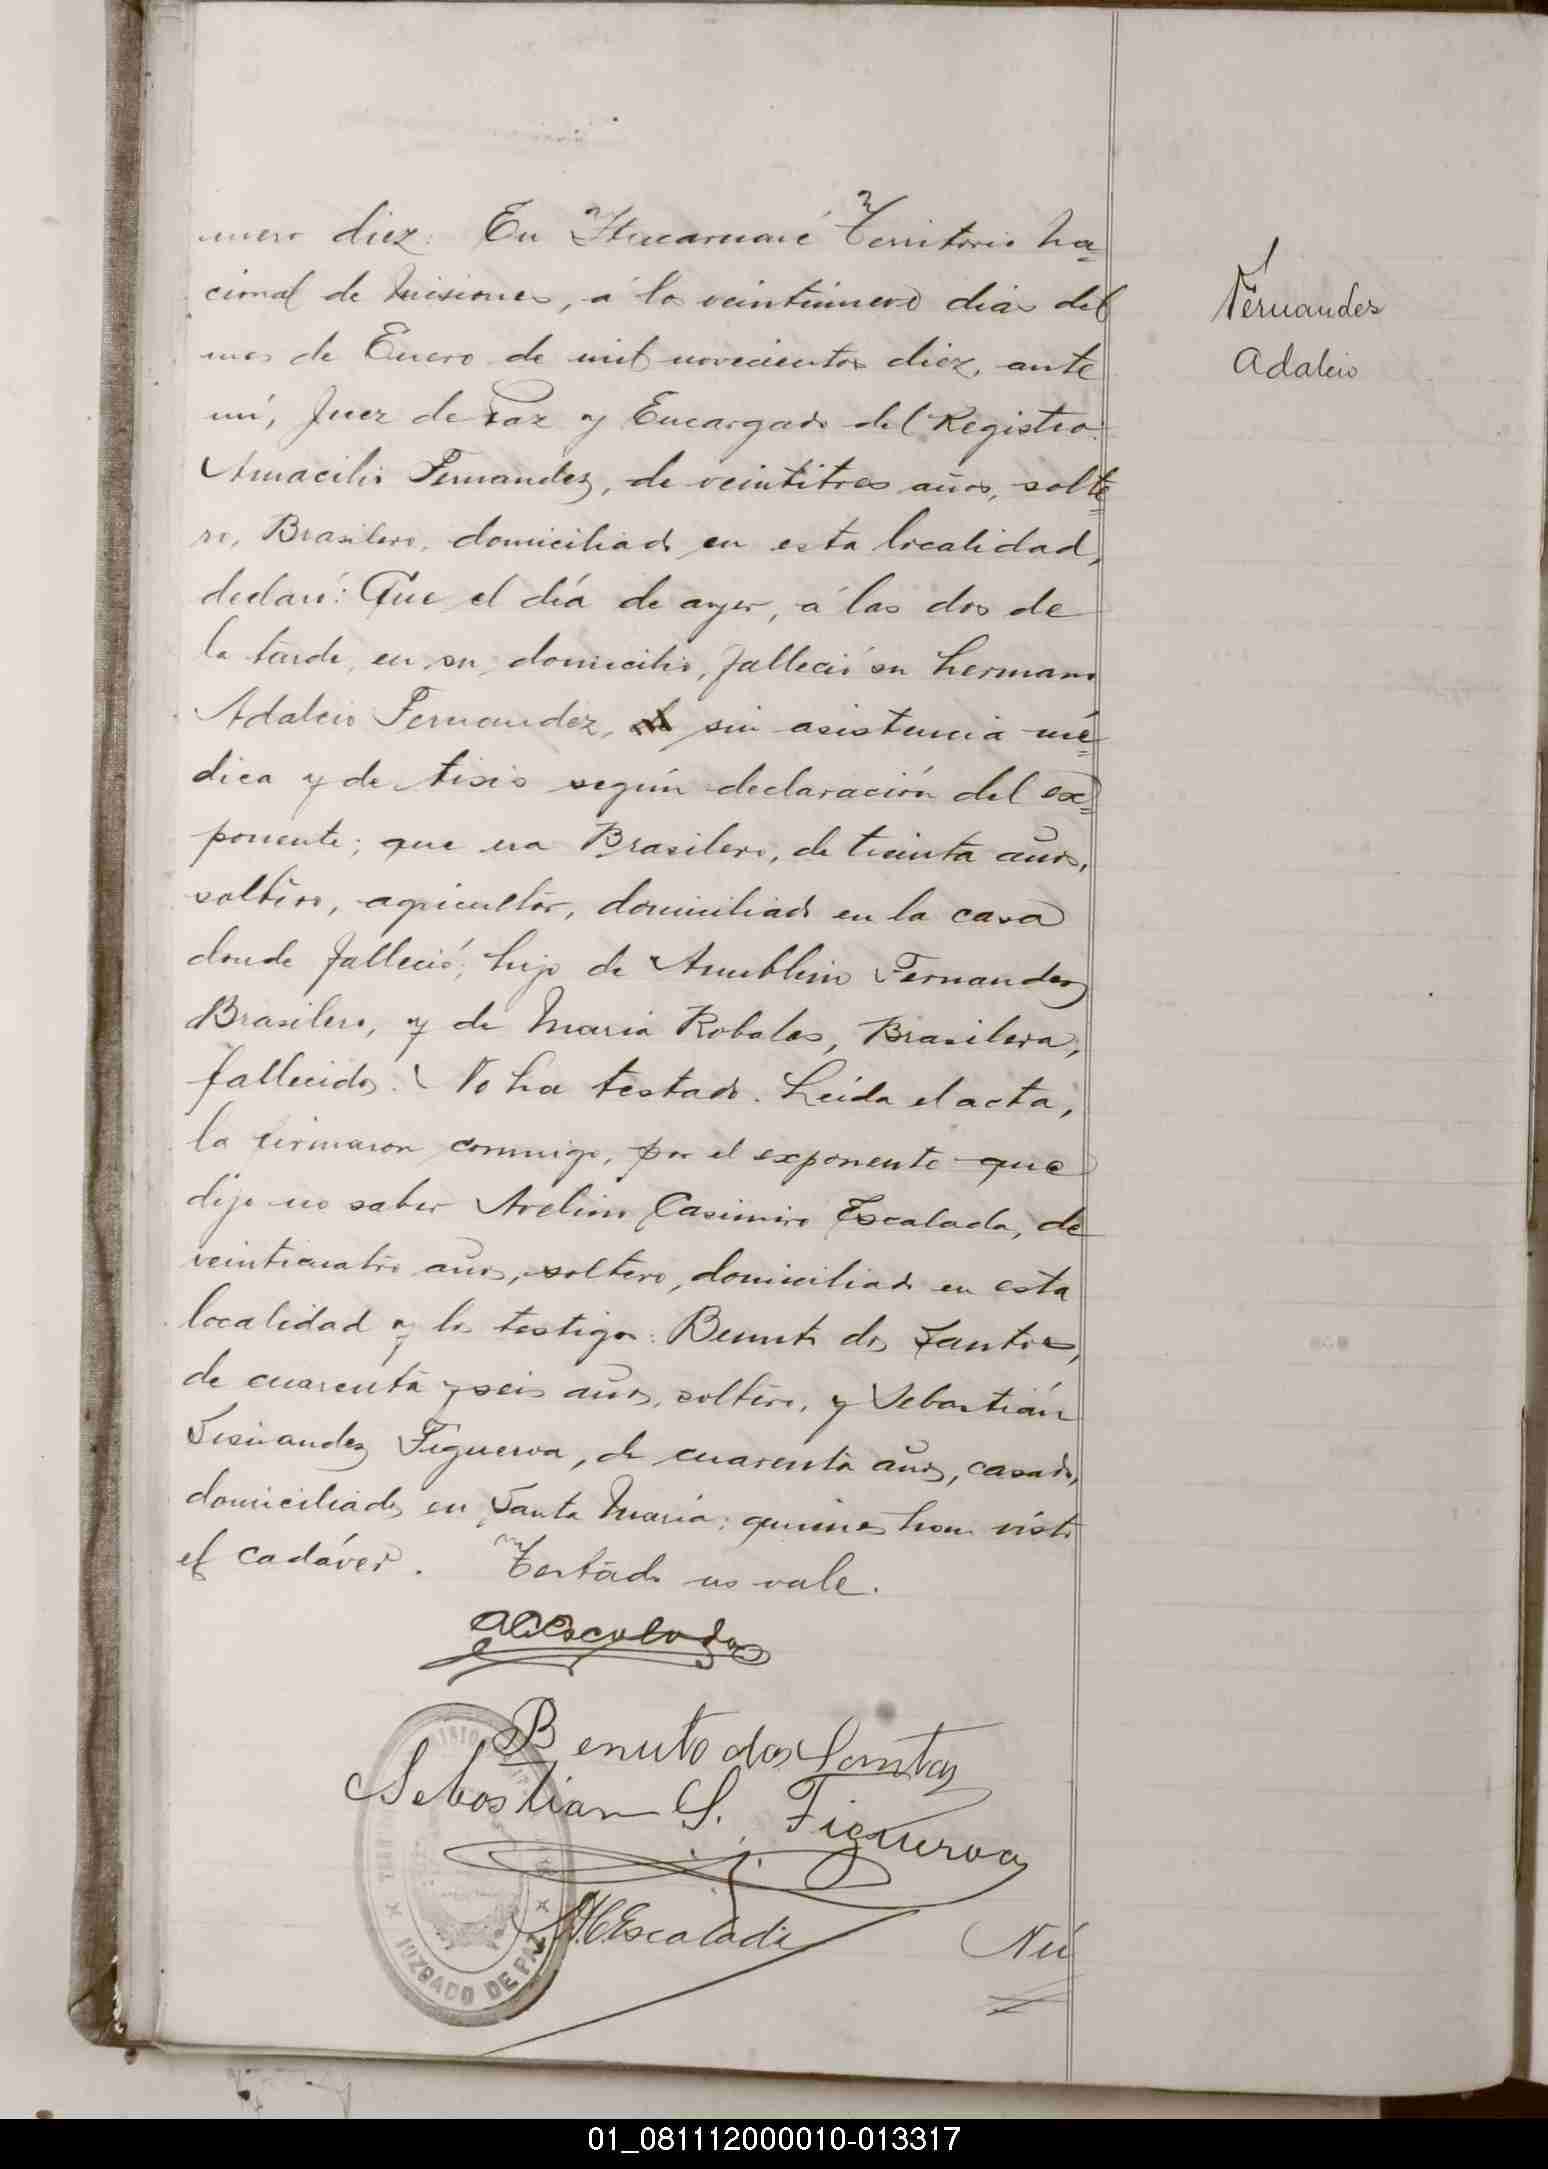 mero diez: En Itacaruaré Territorio Na=
cional de Misiones, á los veintinueve dias del
mes de Enero de mil novecientos diez, ante
mí, Juez de Paz y Encargado del Registro:
Amacilio Fernandez, de veintitres años, solte=
ro, Brasilero, domiciliado en esta localidad,
declaró: Que el día de ayer, á las dos de
la tarde, en su domicilio, falleció su hermano
Adalcio Fernandez, sin asistencia mé=
dica y de tisis según declaración del ex=
ponente; que era Brasilero, de treinta años,
soltero, agricultor, domiciliado en la casa
donde falleció; hijo de Fernandez
Brasilero, y de Maria Robales, Brasilera,
fallecidos. No ha testado. Leída el acta,
la firmaron conmigo, por el exponente que
dijo no saber Avelino Casimiro Escalada, de
veinticuatro años, soltero, domiciliado en esta
localidad y los testigos: Benuto dos Santos,
de cuarenta y seis años, soltero, y Sebastián
Fernandez Figueroa, de cuarenta años, casado,
domiciliados en Santa María; quienes han visto
el cadáver. Testado no vale.
Escalada
Benuto dos Santos
Sebastian S. Figueroa
Escalada
Nú
JUZGADO DE PAZ
Fernandes
Adalcio
01_081112000010-013317